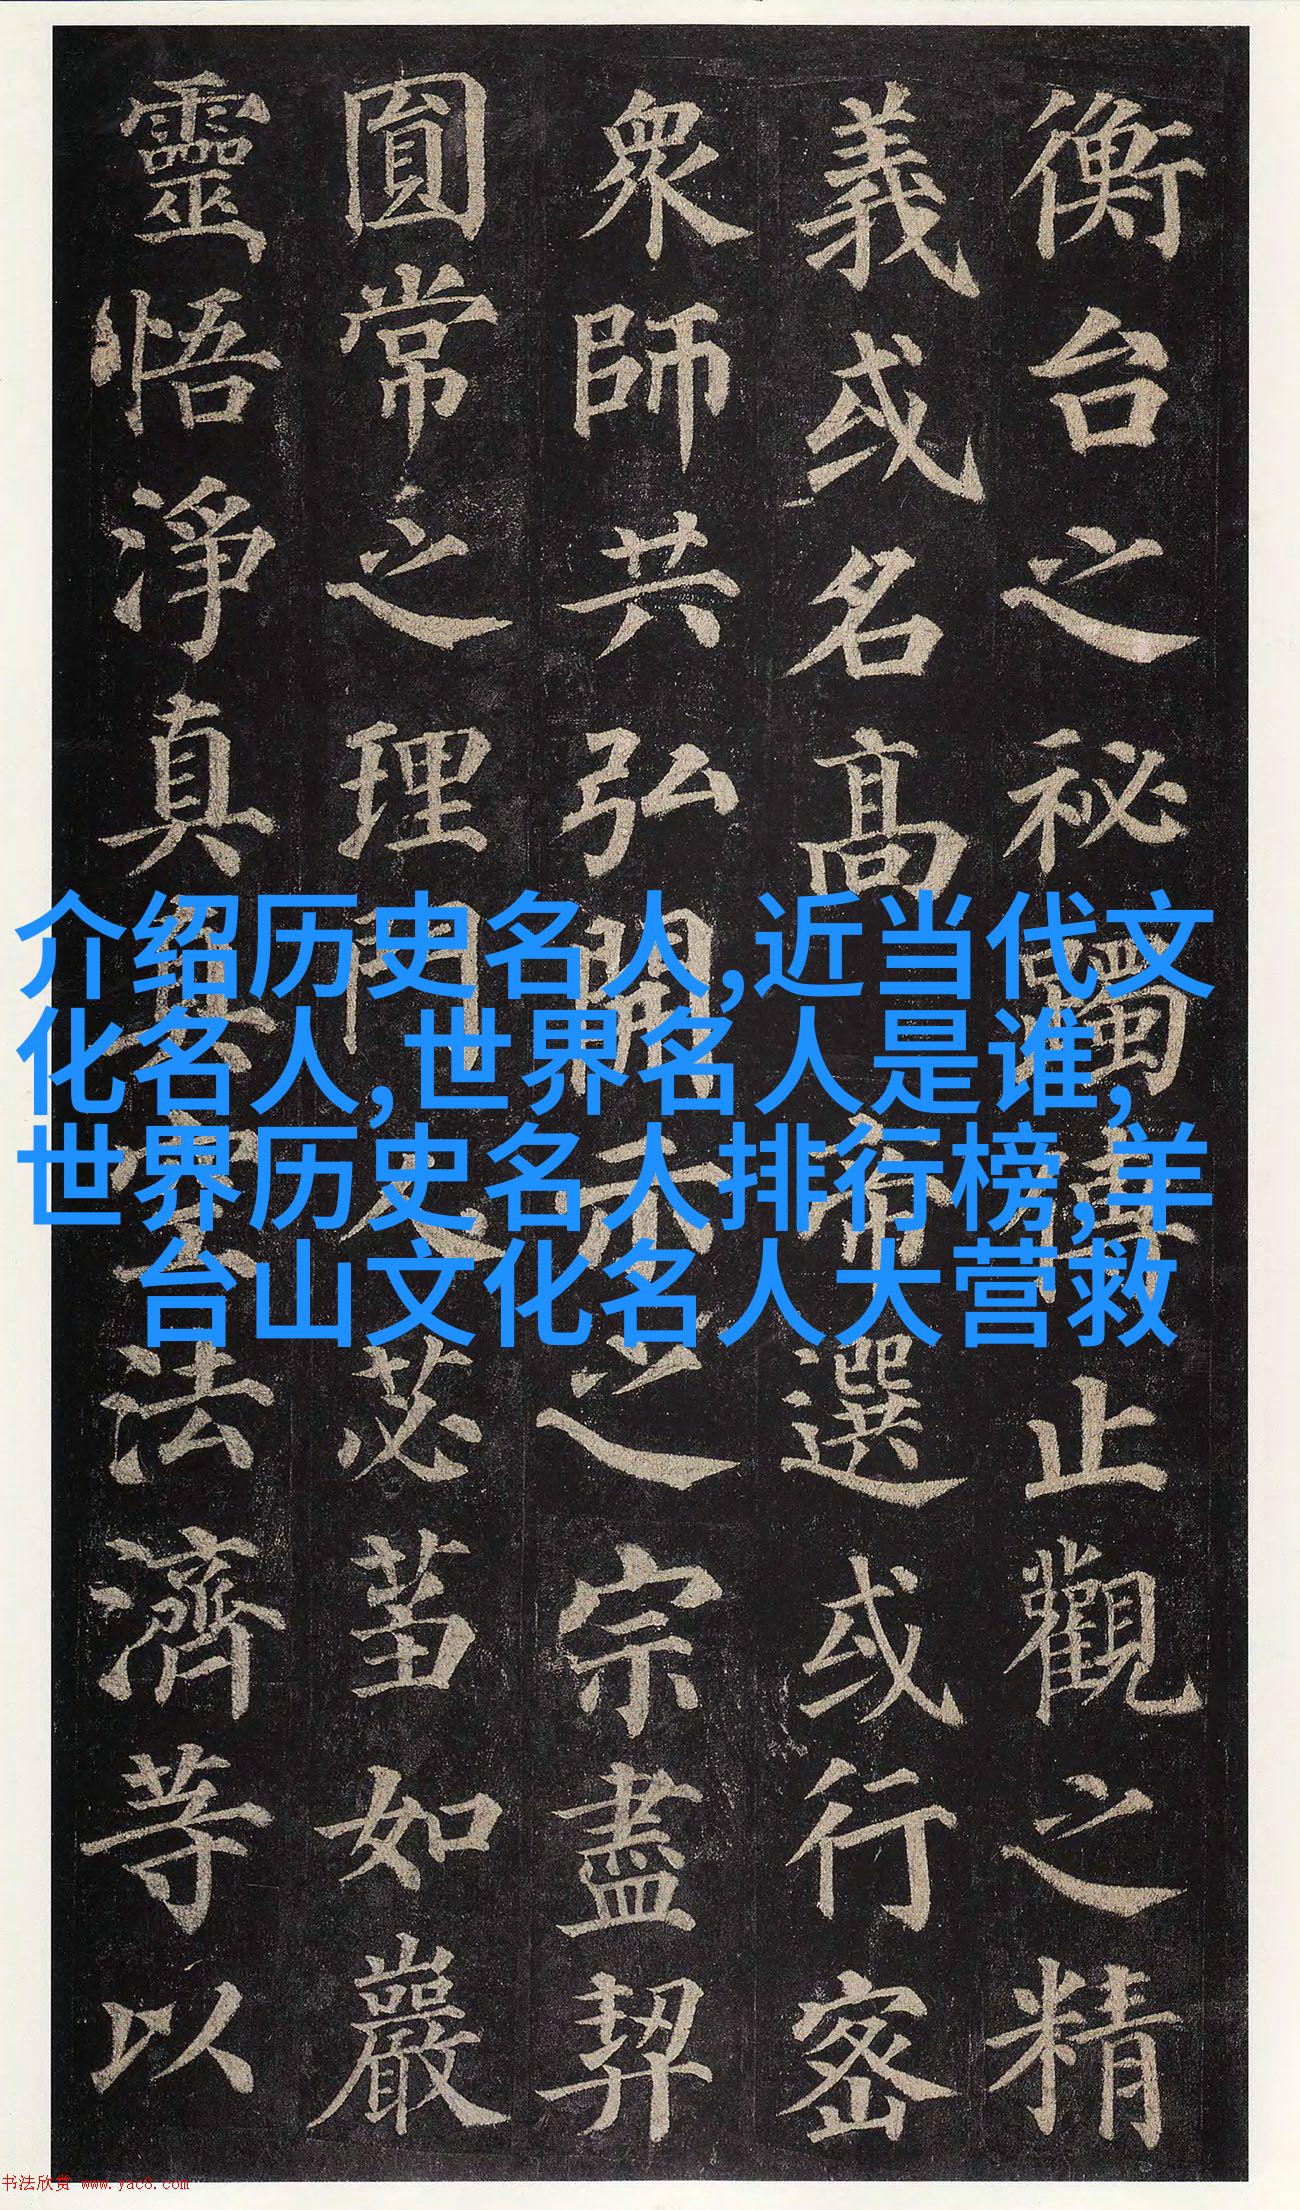 衡台之秘躅傳止觀之精
義或名髙帝選或行密
衆師共弘開示之宗盡契
圎常之理門人苾蒭如巖
靈悟淨真真空法濟等以
介绍历史名人,近当代文
化名人,世界名人是谁,
世界历史名人排行榜,羊
台山文化名人大营救
书法欣赏 www.yac8.com